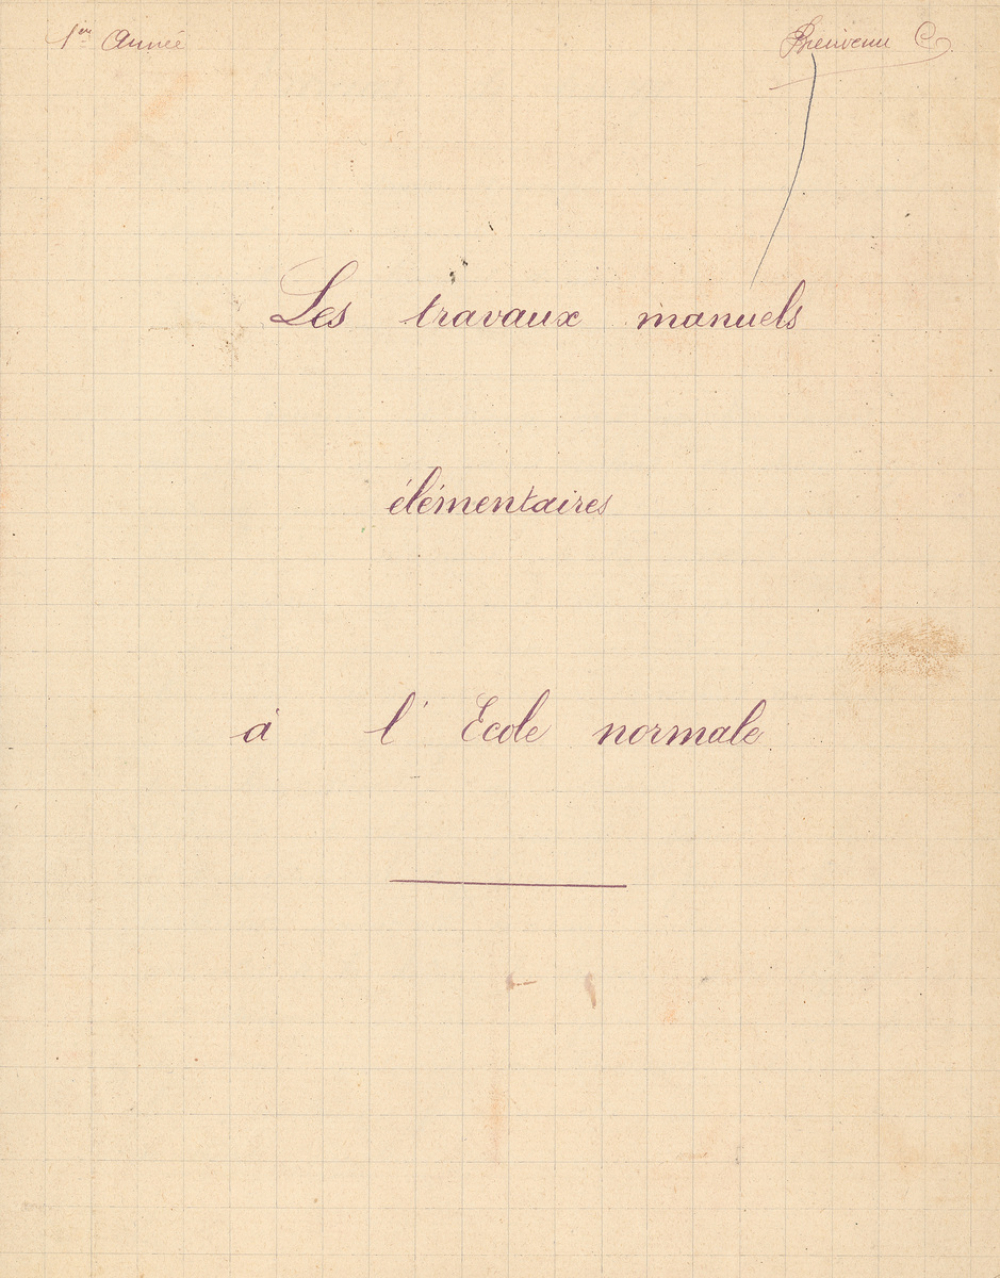 1ère Année
Bienvenu C.
Les travaux manuels
élémentaires
à l'Ecole normale